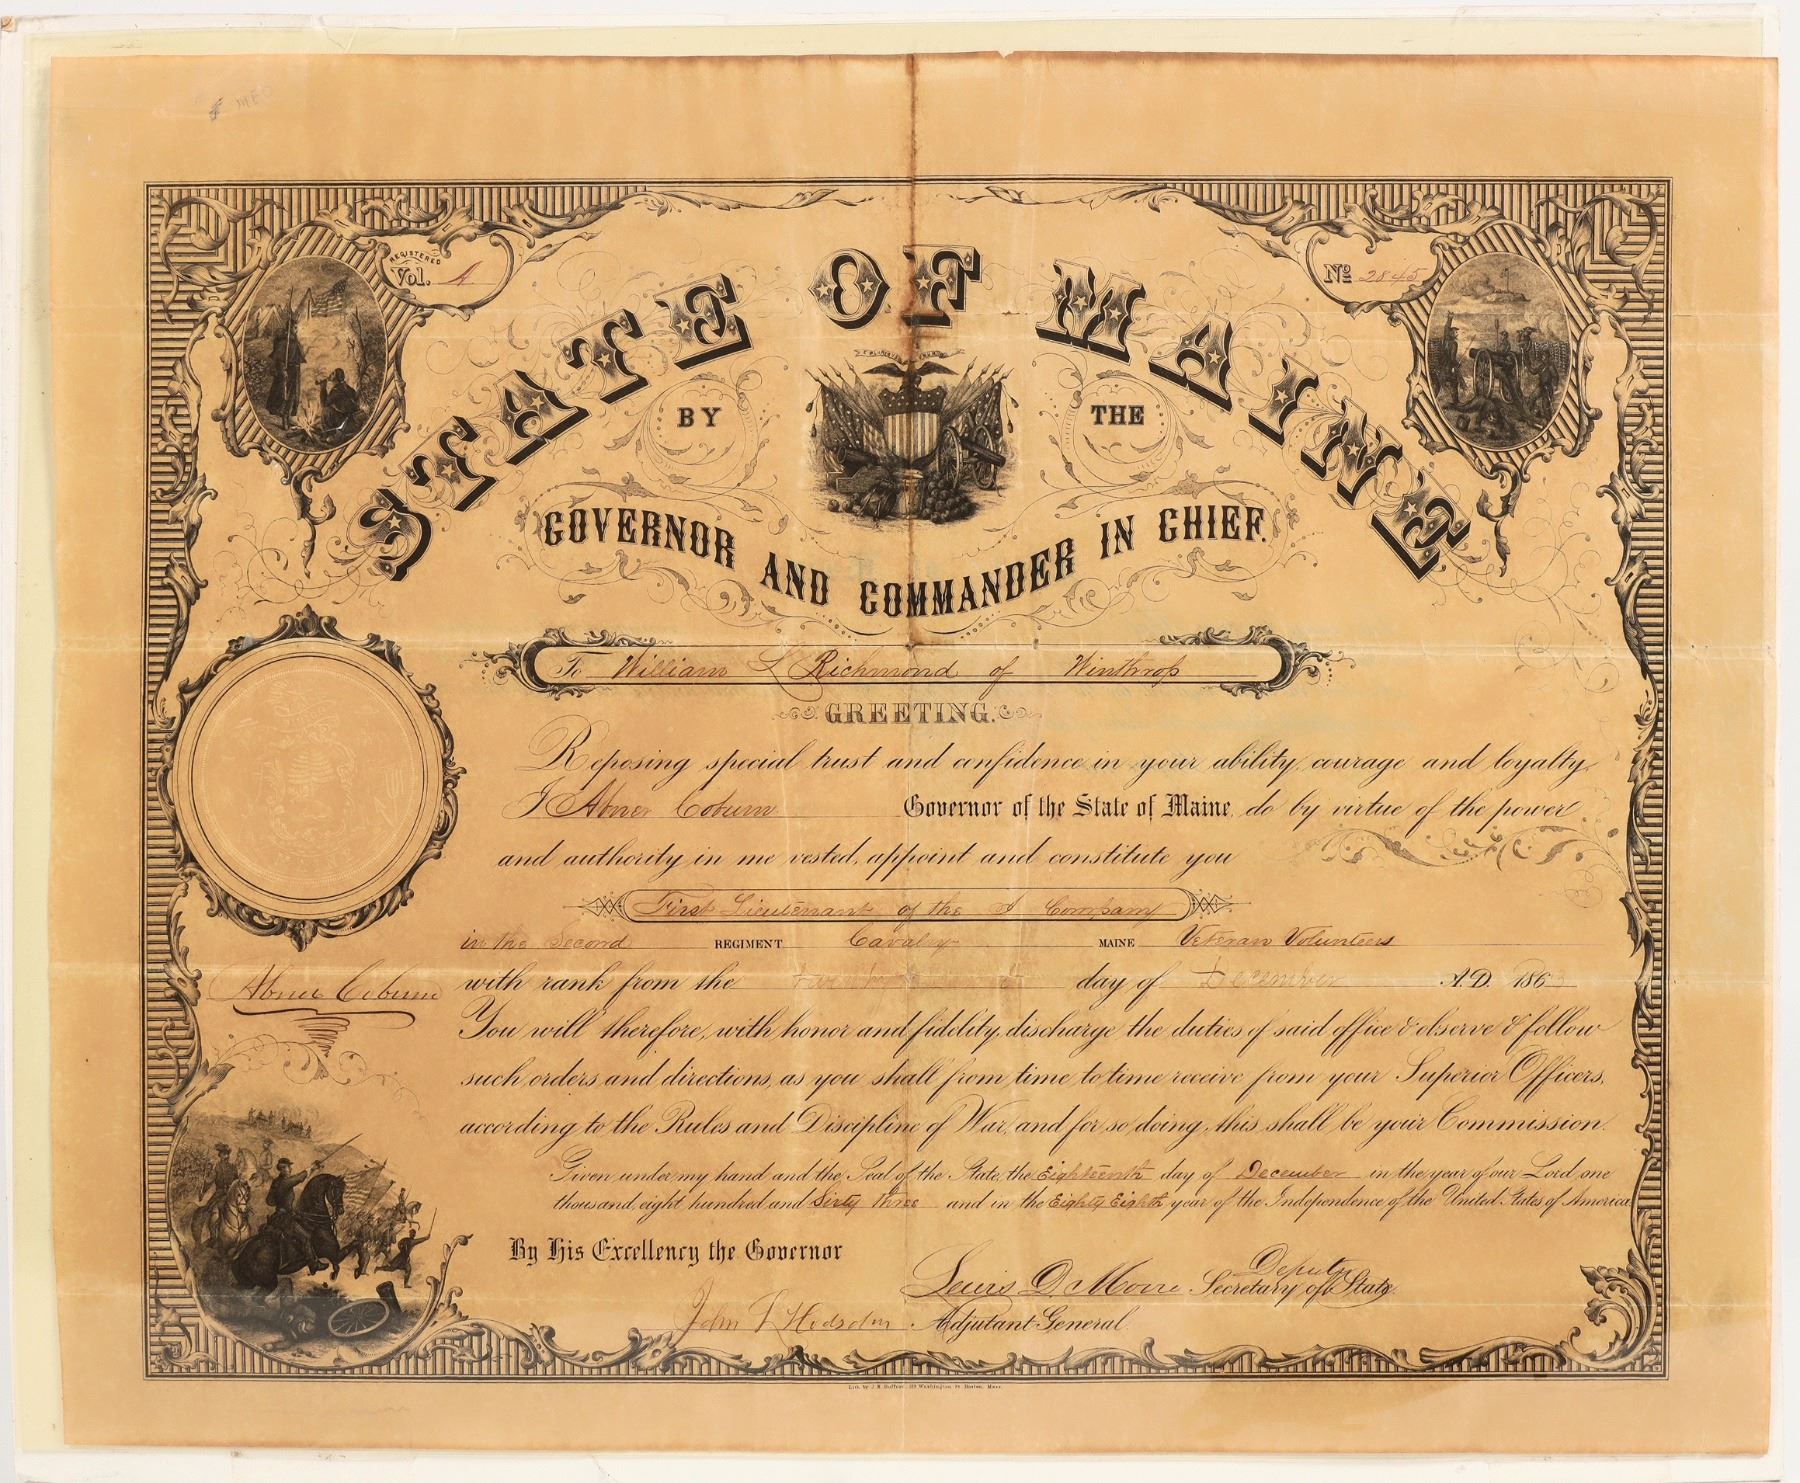 REGISTERED
Vol. A
No 2845
STATE OF MAINE
BY THE
GOVERNOR AND COMMANDER IN CHIEF.
To William L Richmond of Winthrop
GREETING.
Reposing special trust and confidence in your ability, courage and loyalty,
I Abner Coburn Governor of the State of Maine, do by virtue of the power
and authority in me vested, appoint and constitute you
First Lieutenant of the A Company
in the Second REGIMENT Cavalry MAINE Veteran Volunteers
with rank from the day of December A.D. 1863
Abner Coburn
You will therefore, with honor and fidelity, discharge the duties of said office & observe & follow
such, orders and directions, as you shall from time to time receive from your Superior Officers,
according to the Rules and Discipline of War, and for so doing, this shall be your Commission.
Given under my hand and the Seal of the State, the Eighteenth day of December in the year of our Lord one
thousand, eight hundred and Sixty three and in the Eighty Eighth year of the Independence of the United States of America.
By His Excellency the Governor
Lewis D. Moore Deputy Secretary of State.
John L Hodsdon Adjutant General.
Lith. by J.H. Bufford, 313 Washington St. Boston, Mass.